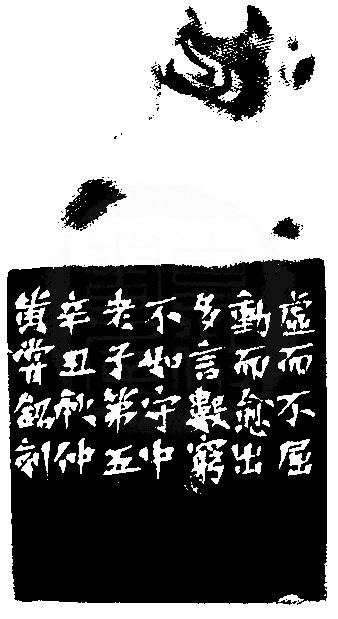 虛而不屈
動而愈出
多言數窮
不如守中
老子第五
辛丑秋仲
黄嘗銘刻